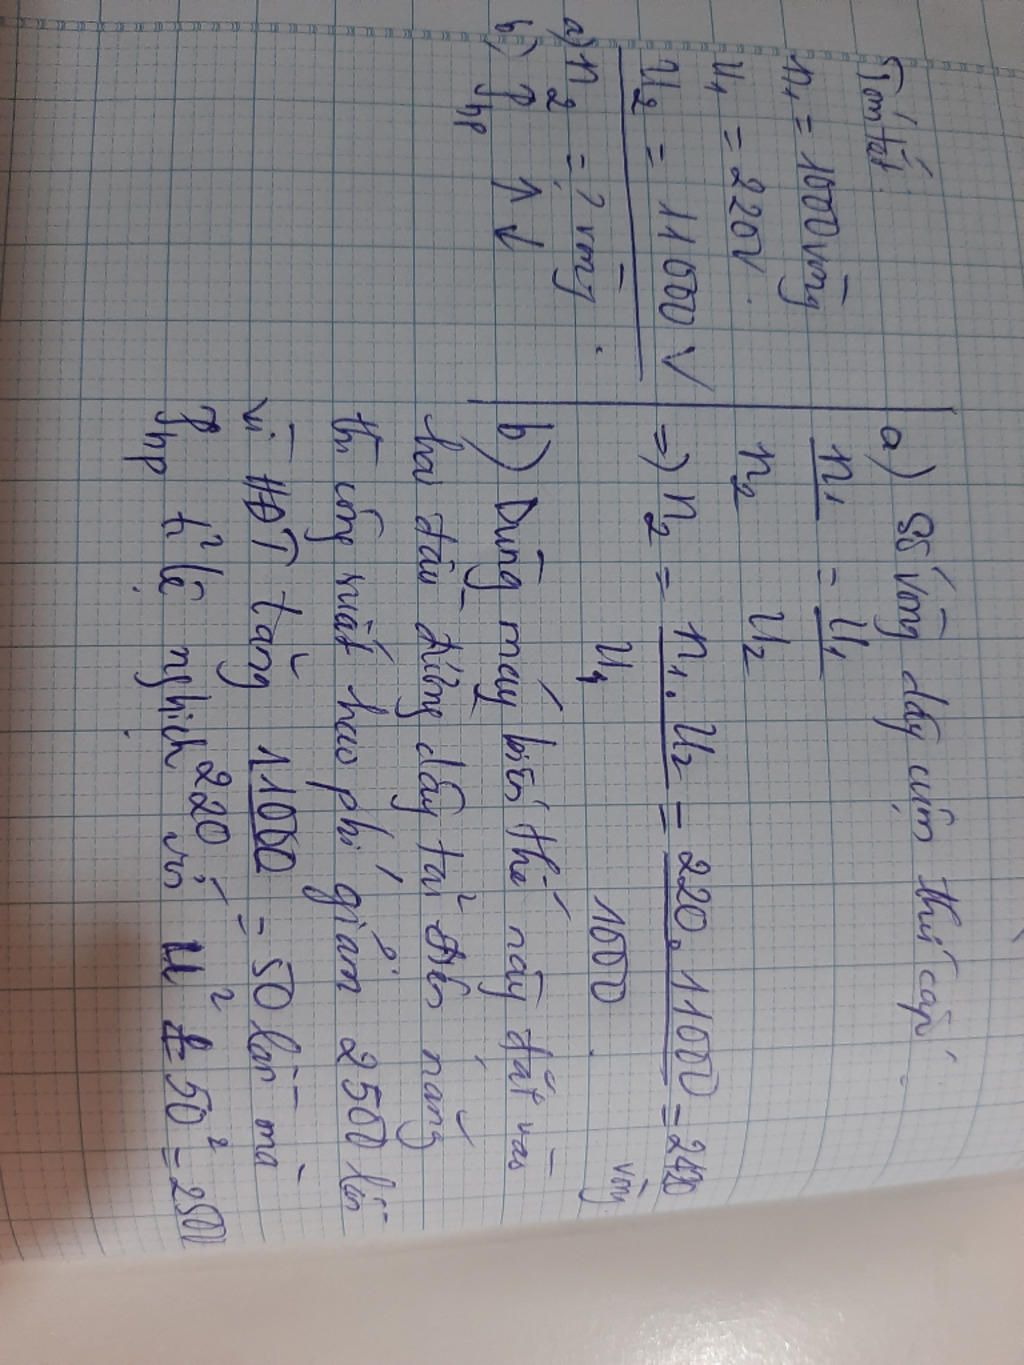 Tóm tắt
n₁ = 1000 vòng
U₁ = 220V.
U₂ = 11000 V
a) n₂ = ? vòng.
b) P hp ↑↓
a) Số vòng dây cuộn thứ cấp.
n₁/n₂ = U₁/U₂
=> n₂ = n₁.U₂/U₁ = 220.11000/1000 = 2420 vòng.
b) Dùng máy biến thế này đặt vào
hai đầu đường dây tải điện năng
thì công suất hao phí giảm 2500 lần
vì HĐT tăng 11000/220 = 50 lần mà
P hp tỉ lệ nghịch với U² = 50² = 2500